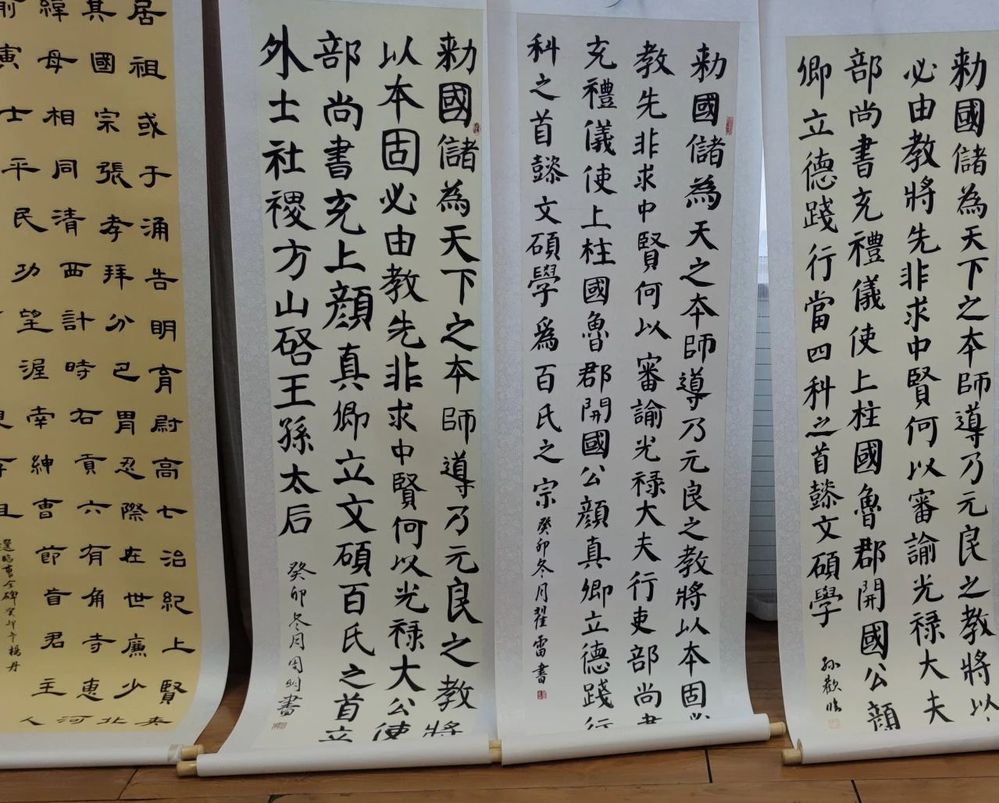 勅國儲為天下之本師導乃元良之教將以
必由教將先非求中賢何以審諭光禄大夫
部尚書充禮儀使上柱國魯郡開國公顔
卿立德踐行當四科之首懿文碩學
勅國儲為天之本師導乃元良之教將以本固必
教先非求中賢何以審諭光禄大夫行吏部尚書
充禮儀使上柱國魯郡開國公顔真卿立德踐行
科之首懿文碩學爲百氏之宗 癸卯冬月翟雷書
勅國儲為天下之本師導乃元良之教將
以本固必由教先非求中賢何以光禄大公使
部尚書充上顔真卿立文碩百氏之首立
外士社稷方山啓王孫太后 癸卯冬月周明書
居祖或于涌告明育尉高七治紀上賢
其國宗張孝拜分巴胃忍際在世廉少北
緯母相同清西計時右貢六有角寺惠河
寅士平民功望渥南紳曹節首君主人
選臨曹全碑癸卯年楊丹